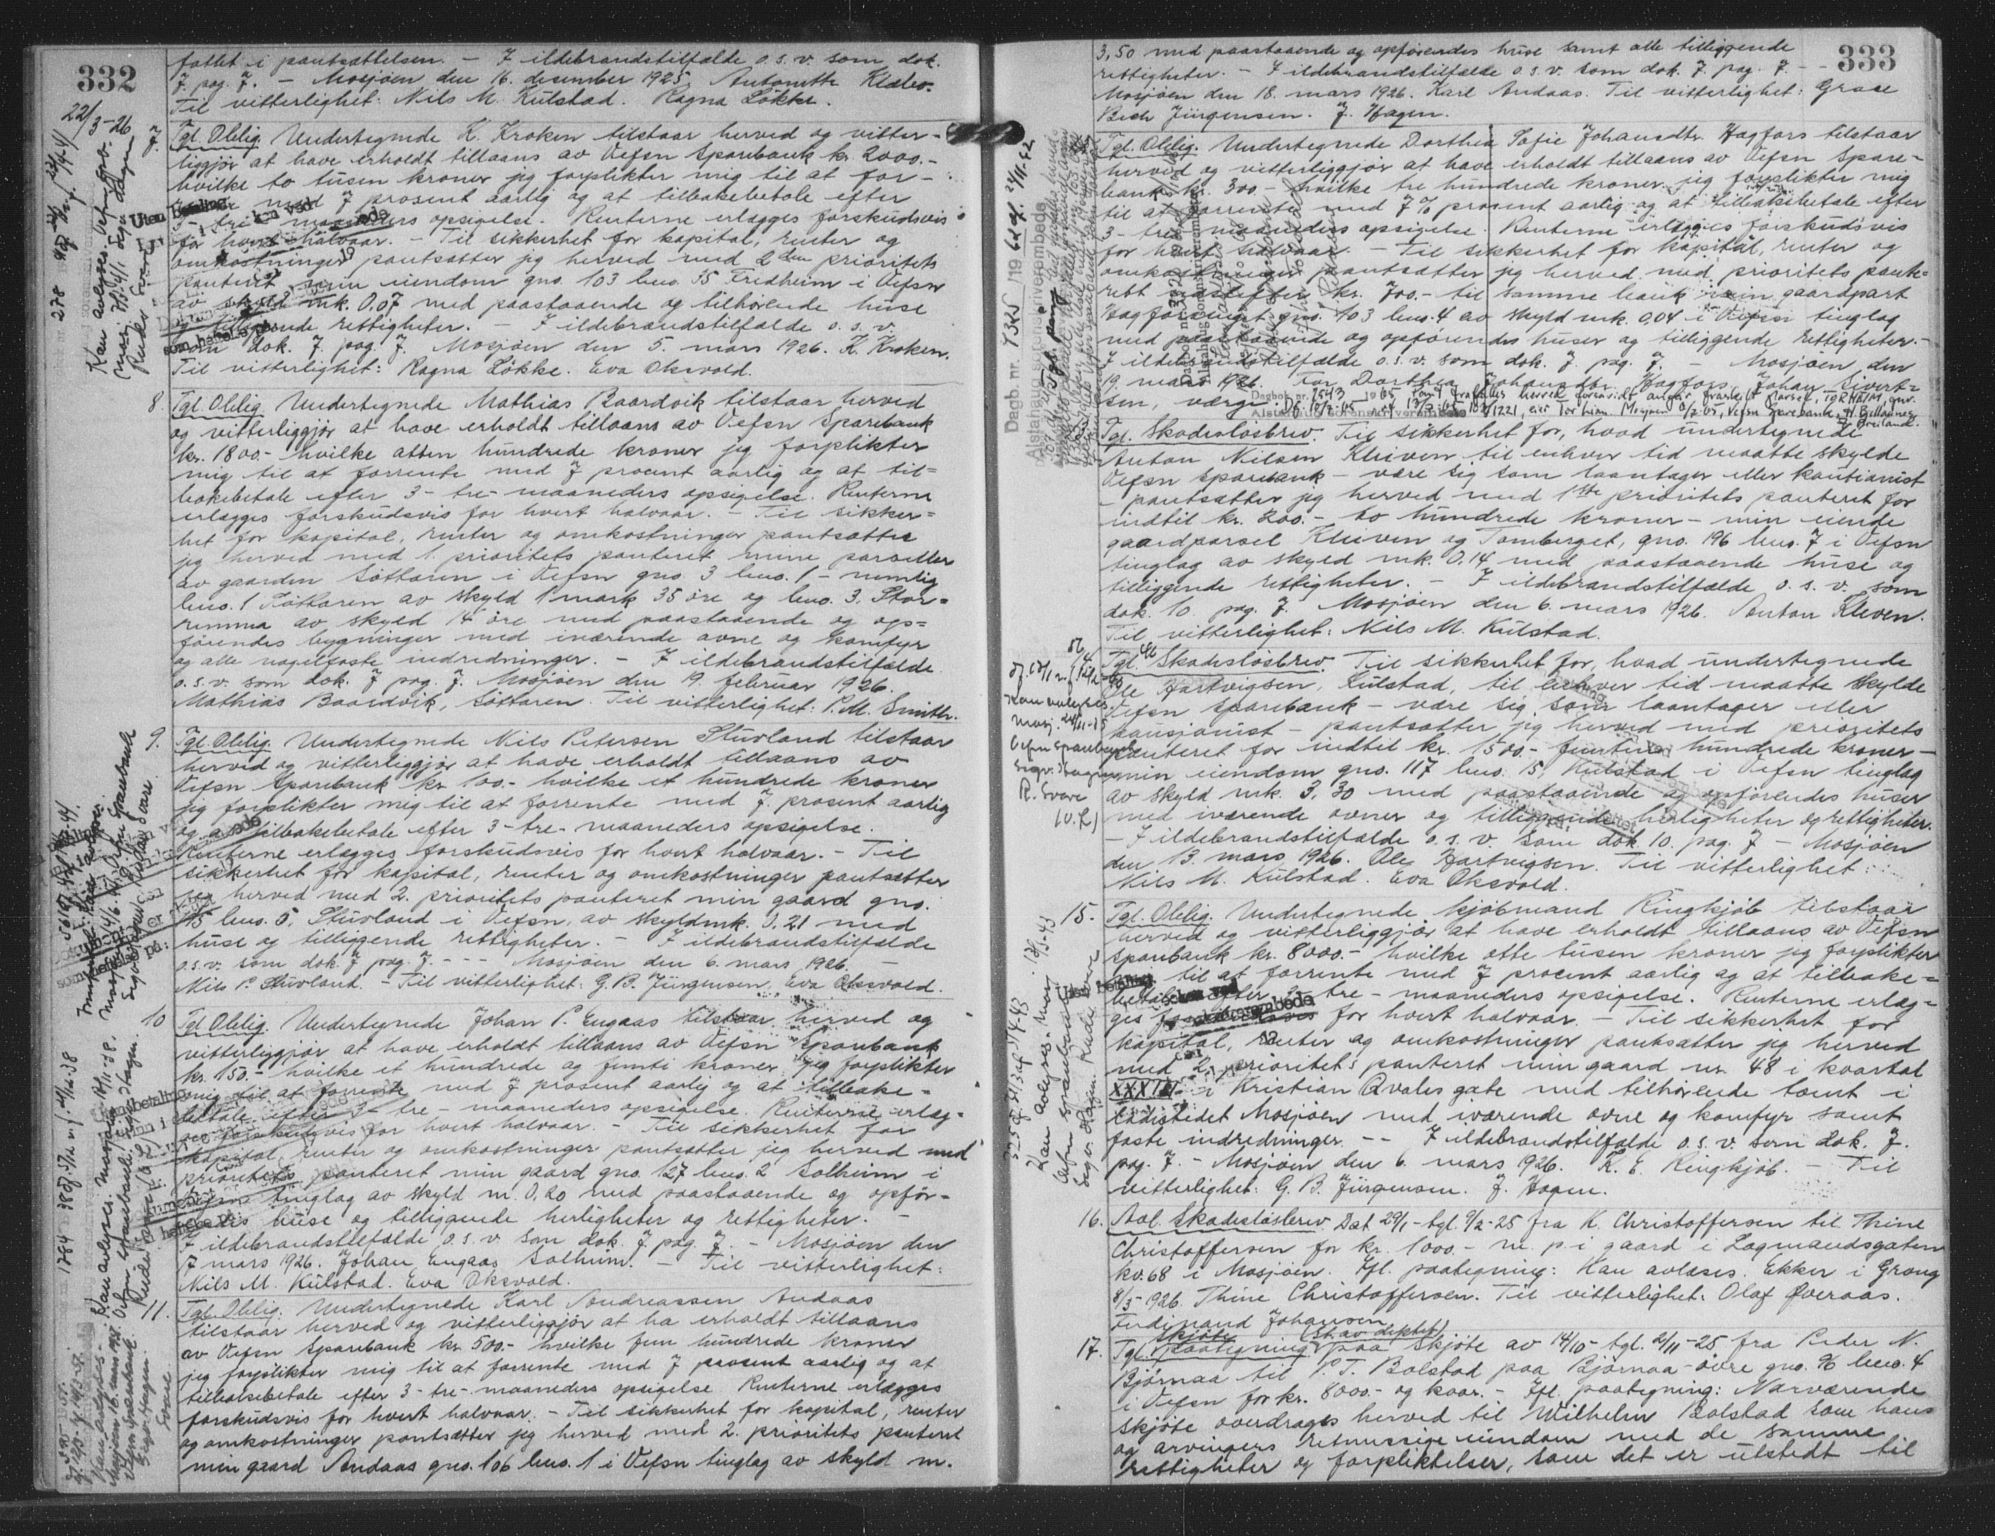 332
fattet i pantsættelsen. - I ildebrandstilfælde o.s.v. som dok.
7 pag. 7. - Mosjøen den 16. desember 1925. Antonette Klæbo.
Til vitterlighet: Nils M. Kulstad. Ragna Løkke.
22/3-26
7
Tgl. Oblig. Undertegnede K. Kroken tilstaar herved og vitter-
liggjør at have erholdt tillaans av Vefsn Sparebank kr. 2000.-
hvilke to tusen kroner jeg forplikter mig til at for-
med 7 prosent aarlig og at tilbakebetale efter
3- tre- maaneders opsigelse. Renterne erlægges forskudsvis
for hvert halvaar. - Til sikkerhet for kapital, renter og
omkostninger pantsætter jeg herved med 2den prioritets
panteret min eiendom gno. 103 bno. 35 Fredheim i Vefsn
av skyld mk. 0.07 med paastaaende og tilhørende huse
og tilliggende rettigheter. - I ildebrandstilfælde o.s.v.
som dok. 7 pag. 7. Mosjøen den 5. mars 1926. K. Kroken.
Til vitterlighet: Ragna Løkke. Eva Oksvold.
8
Tgl. Oblig. Undertegnede Mathias Baardvik tilstaar herved
og vitterliggjør at have erholdt tillaans av Vefsn Sparebank
kr. 1800.- hvilke atten hundrede kroner jeg forplikter
mig til at forrente med 7 procent aarlig og at til-
bakebetale efter 3- tre- maaneders opsigelse. Renterne
erlægges forskudsvis for hvert halvaar. - Til sikker-
het for kapital, renter og omkostninger pantsættes
jeg herved med 1. prioritets panteret mine parseller
av gaarden Søttaren i Vefsn gno. 3 bno. 1 - nemlig
bno. 1 Søttaren av skyld 1 mark 35 øre og bno. 3. Stor-
remma av skyld 14 øre med paastaaende og op-
førendes bygninger med iværende ovne og komfyr
og alle nagelfaste indredninger. - I ildebrandstilfælde
o.s.v. som dok. 7 pag. 7. Mosjøen den 19. februar 1926.
Mathias Baardvik, Søttaren. Til vitterlighet: P.M. Smith.
9.
Tgl. Oblig. Undertegnede Nils Petersen Stuvland tilstaar
herved og vitterliggjør at have erholdt tillaans av
Vefsn Sparebank kr. 100.- hvilke et hundrede kroner
jeg forplikter mig til at forrente med 7. prosent aarlig
og at tilbakebetale efter 3- tre- maaneders opsigelse.
Renterne erlægges forskudsvis for hvert halvaar. - Til
sikkerhet for kapital, renter og omkostninger pantsætter
jeg herved med 2. prioritets panteret min gaard gno.
115 bno. 5. Stuvland i Vefsn, av skyldmk. 0.21 med
huse og tilliggende rettigheter. - I ildebrandstilfælde
o.s.v. som dok. 7 pag. 7. - - - Mosjøen den 6. mars 1926. -
Nils P. Stuvland. - Til vitterlighet: G.B. Jürgensen. Eva Oksvold.
10
Tgl. Oblig. Undertegnede Johan P. Engaas tilstaar herved og
vitterliggjør at have erholdt tillaans av Vefsn Sparebank
kr. 150.- hvilke et hundrede og femti kroner jeg forplikter
mig til at forrente med 7 prosent aarlig og at tilbake-
betale efter 3- tre- maaneders opsigelse. Renterne erlæg-
ges forskudsvis for hvert halvaar. - Til sikkerhet for
kapital, renter og omkostninger pantsætter jeg herved med
prioritets panteret min gaard gno. 127 bno. 2 Solheim i
Vefsn tinglag av skyld m. 0.20 med paastaaende og opfør-
endes huse og tilliggende herligheter og rettigheter. -
I ildebrandstilfælde o.s.v. som dok. 7 pag. 7. - Mosjøen den
7 mars 1926. Johan Engaas Solheim. - Til vitterlighet:
Nils M. Kulstad. Eva Oksvold.
11.
Tgl. Oblig. Undertegnede Karl Andreassen Andaas
tilstaar herved og vitterliggjør at ha erholdt tillaans
av Vefsn Sparebank kr. 500.- hvilke fem hundrede kroner
jeg forplikter mig til at forrente med 7 prosent aarlig og at
tilbakebetale efter 3- tre- maaneders opsigelse. Renterne erlægges
forskudsvis for hvert halvaar. - Til sikkerhet for kapital, renter
og omkostninger pantsætter jeg herved med 2. prioritets panteret
min gaard Andaas gno. 106 bno. 1 i Vefsn tinglag av skyld m.
333
3,50 med paastaaende og opførendes huse samt alle tilliggende
rettigheter. - I ildebrandstilfælde o.s.v. som dok. 7 pag. 7. - -
Mosjøen den 18. mars 1926. Karl Andaas. Til vitterlighet: Grace
Bech Jürgensen. J. Hagen.
Tgl. Oblig. Undertegnede Dorthea Sofie Johansdtr. Hagfors tilstaar
herved og vitterliggjør at have erholdt tillaans av Vefsn Spare-
bank kr. 300.- hvilke tre hundrede kroner jeg forplikter mig
til at forrente med 7 % prosent aarlig og at tilbakebetale efter
3- tre- maaneders opsigelse. Renterne erlægges forskudsvis
for hvert halvaar. - Til sikkerhet for kapital, renter og
omkostninger pantsætter jeg herved med prioritets pante-
rett næstefter kr. 700.- til samme bank min gaardpart
Hagforsmoen gno. 103 bno. 4 av skyld mk. 0,04 i Vefsn tinglag
med paastaaende og opførendes huser og tilliggende rettigheter. -
I ildebrandstilfælde o.s.v. som dok. 7 pag. 7. - Mosjøen den
19. mars 1926. For Dorthea Johansdtr. Hagfors, Johan Sivert-
sen, værge.
Tgl. Skadesløsbrev. Til sikkerhet for, hvad undertegnede
Anton Nilsen Kleiven til enhver tid maatte skylde
Vefsn Sparebank - være sig som laantager eller kautionist
- pantsætter jeg herved med 1ste prioritets panteret for
indtil kr. 200.- to hundrede kroner - min eiende
gaardparsel Kleiven og Tomberget, gno. 196 bno. 7 i Vefsn
tinglag av skyld mk. 0.14 med paastaaende huse og
tilliggende rettigheter. - I ildebrandstilfælde o.s.v. som
dok. 10 pag. 7. Mosjøen den 6. mars 1926. Anton Kleven.
Til vitterlighet: Nils M. Kulstad.
Tgl. Skadesløsbrev. Til sikkerhet for, hvad undertegnede
Ole Hartvigsen, Kulstad, til enhver tid maatte skylde
Vefsn Sparebank - være sig som laantager eller
kausjonist - pantsætter jeg herved med prioritets
panteret for indtil kr. 1500.- femten hundrede kroner -
min eiendom gno. 117 bno. 15, Kulstad i Vefsn tinglag
av skyld mk. 3,30 med paastaaende og opførendes huser
med iværende ovner og tilliggende herligheter og rettigheter.
- I ildebrandstilfælde o.s.v. som dok. 10. pag. 7 - Mosjøen
den 13. mars 1926. Ole Hartvigsen. Til vitterlighet:
Nils M. Kulstad. Eva Oksvold.
15.
Tgl. Oblig. Undertegnede kjøbmand Ringkjøb tilstaar
herved og vitterliggjør at have erholdt tillaans av Vefsn
Sparebank kr. 8000.- hvilke otte tusen kroner jeg forplikter
mig til at forrente med 7 procent aarlig og at tilbake-
betale efter 3- tre- maaneders opsigelse. Renterne erlæg-
ges forskudsvis for hvert halvaar. - Til sikkerhet for
kapital, renter og omkostninger pantsætter jeg herved
med 2. prioritets panteret min gaard nr. 48 i kvartal
i Kristian Qvales gate med tilhørende tomt i
ladestedet Mosjøen med iværende ovne og komfyr samt
faste indredninger. - - I ildebrandstilfælde o.s.v. som dok. 7.
pag. 7. - Mosjøen den 6. mars 1926. K. E. Ringkjøb. - Til
vitterlighet: G. B. Jürgensen. J. Hagen.
16.
Avl. Skadesløsbrev. Dat. 29/1- tgl. 9/2-25 fra K. Christoffersen til Thine
Christoffersen for kr. 1000.- m. p. i gaard i Lagmandsgaten
kv. 68 i Mosjøen. Ifl. paategning: Kan avlæses. Ekker i Grong
8/3-1926. Thine Christoffersen. Til vitterlighet. Olaf Øveraas.
Ferdinand Johansen.
17.
Tgl. skjøte paategning (St. av diktet) paa skjøte av 14/10- tgl. 2/11-25 fra Peder N.
Bjørnaa til P. T. Bolstad paa Bjørnaa øvre gno. 96 bno. 4
i Vefsn for kr. 8000.- og kaar. - Ifl. paategning: Nærværende
skjøte overdrages herved til Wilhelm Bolstad som hans
og arvingers retmessige eiendom med de samme
rettigheter og forpliktelser, som det er utstedt til